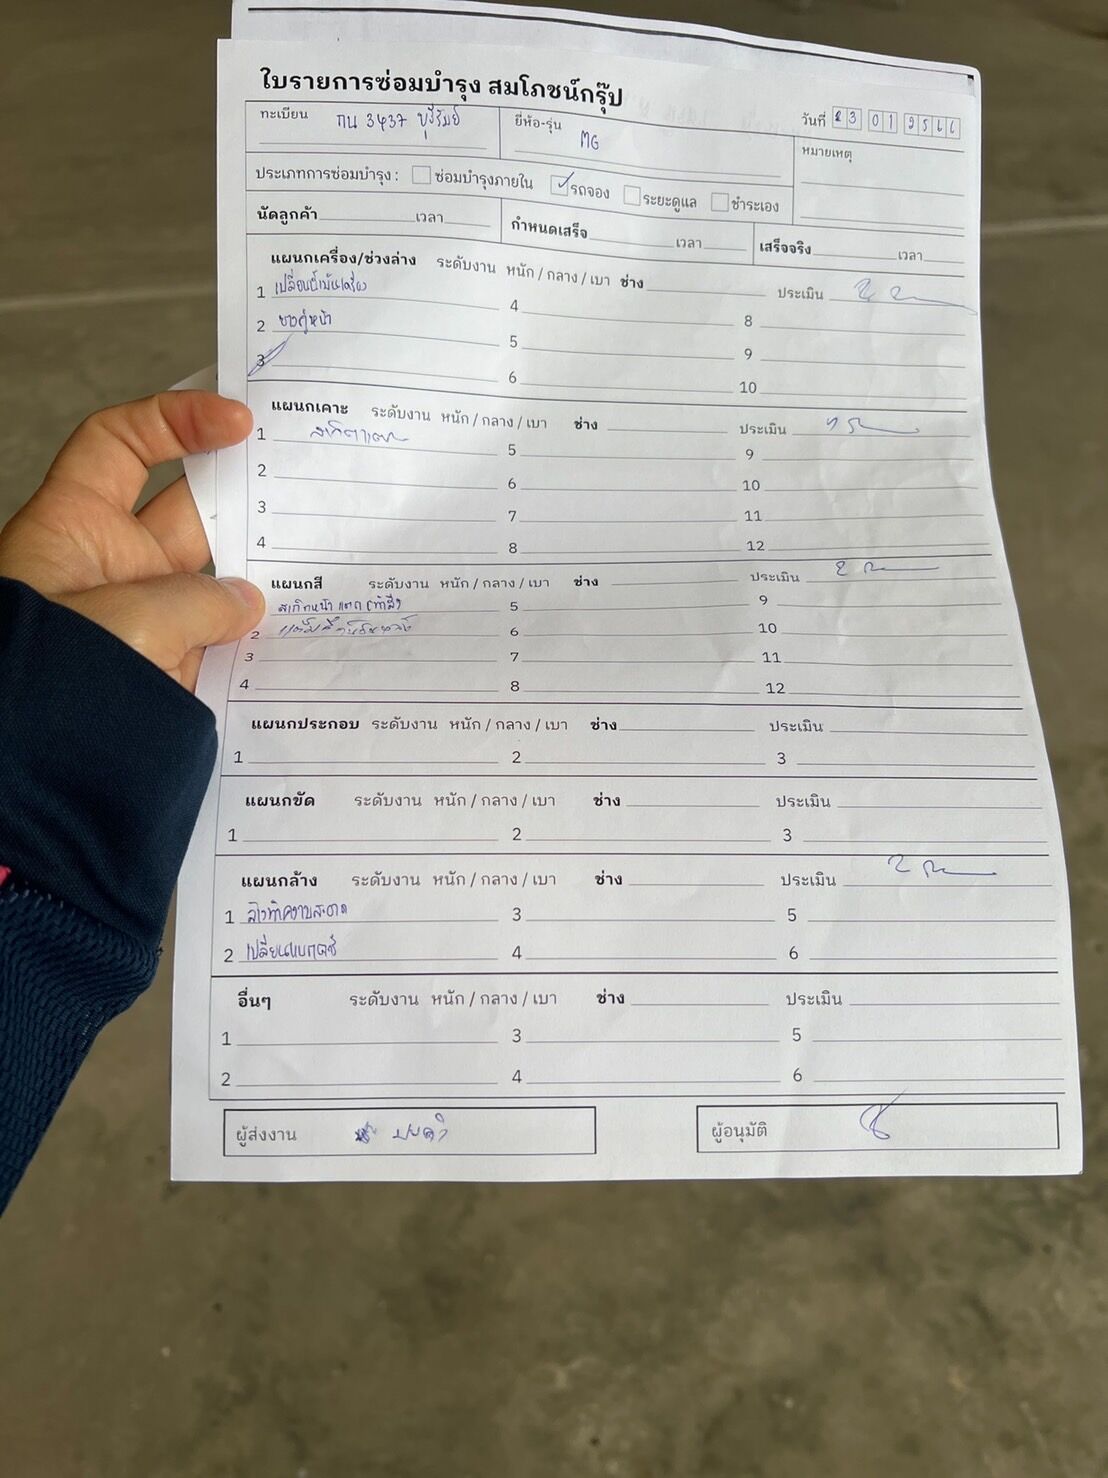 ใบรายการซ่อมบำรุง สมโภชน์กรุ๊ป
ทะเบียน กน 3437 บุรีรัมย์ ยี่ห้อ-รุ่น MG วันที่ 23 01 2566
หมายเหตุ
ประเภทการซ่อมบำรุง : ซ่อมบำรุงภายใน รถจอง ระยะดูแล ชำระเอง
นัดลูกค้า เวลา กำหนดเสร็จ เวลา เสร็จจริง เวลา
แผนกเครื่อง/ช่วงล่าง ระดับงาน หนัก / กลาง / เบา ช่าง ประเมิน
1 เปลี่ยนน้ำมันเครื่อง 4 8
2 ยางคู่หน้า 5 9
3 6 10
แผนกเคาะ ระดับงาน หนัก / กลาง / เบา ช่าง ประเมิน
1 5 9
2 6 10
3 7 11
4 8 12
แผนกสี ระดับงาน หนัก / กลาง / เบา ช่าง ประเมิน
สเกิทหน้า แตก (ทำสี) 5 9
2 แต้มสี 6 10
3 7 11
4 8 12
แผนกประกอบ ระดับงาน หนัก / กลาง / เบา ช่าง ประเมิน
1 2 3
แผนกขัด ระดับงาน หนัก / กลาง / เบา ช่าง ประเมิน
1 2 3
แผนกล้าง ระดับงาน หนัก / กลาง / เบา ช่าง ประเมิน
1 ล้างทำความสะอาด 3 5
2 เปลี่ยนแบตเตอรี่ 4 6
อื่นๆ ระดับงาน หนัก / กลาง / เบา ช่าง ประเมิน
1 3 5
2 4 6
ผู้ส่งงาน ผู้อนุมัติ